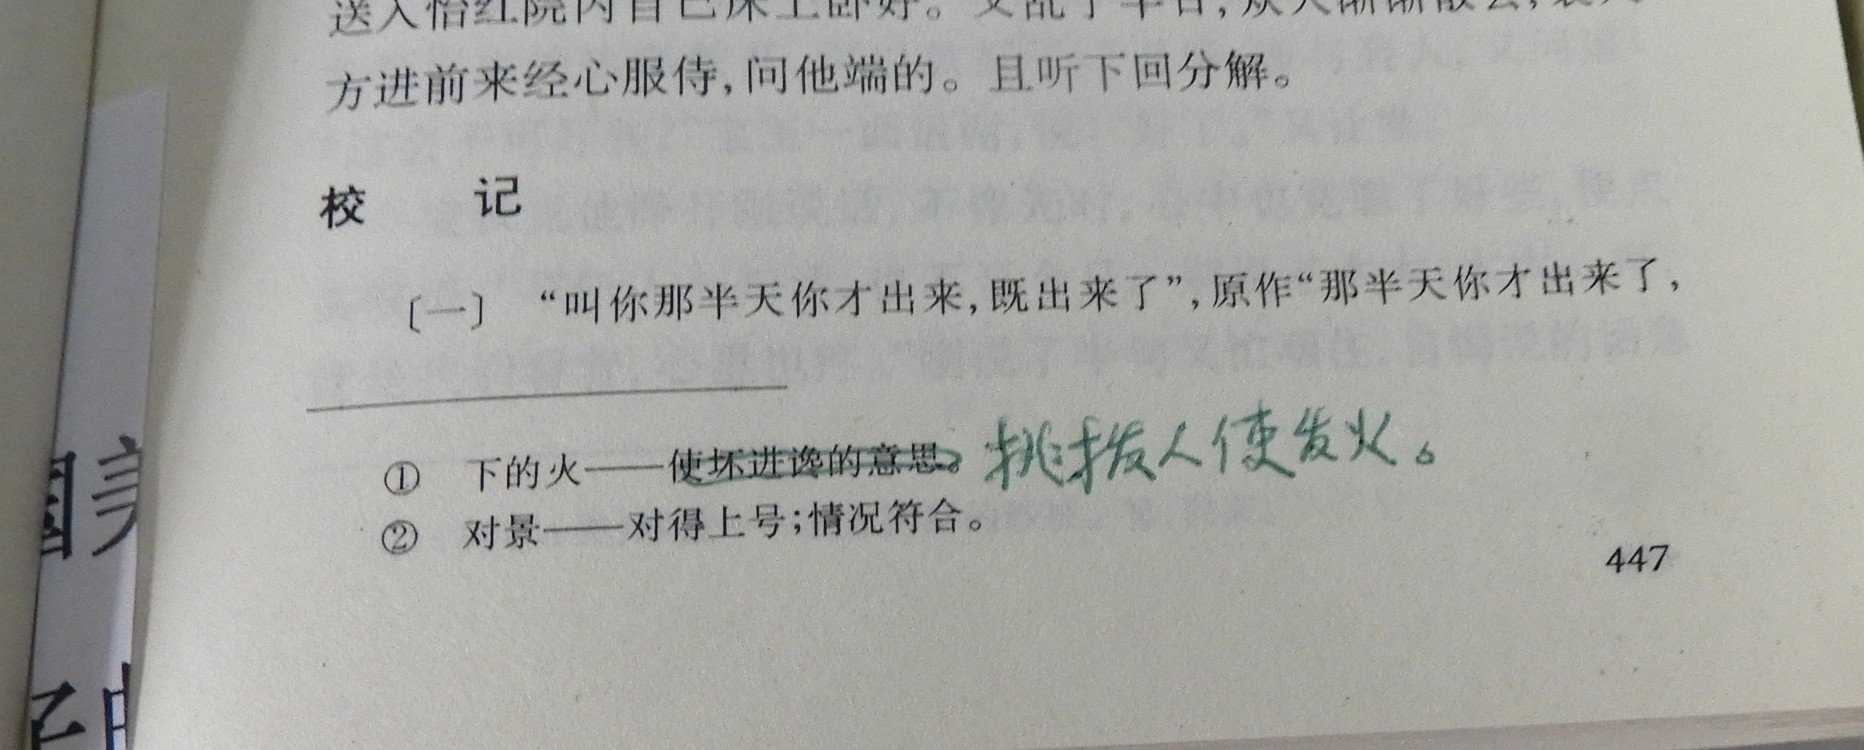 送入怡红院内自己床上卧好。又乱了半日，众人渐渐散去，袭人
方进前来经心服侍，问他端的。且听下回分解。
校 记
〔一〕 “叫你那半天你才出来，既出来了”，原作“那半天你才出来了，
① 下的火——使坏进谗的意思。 挑拨人使发火。
② 对景——对得上号；情况符合。
447
国美